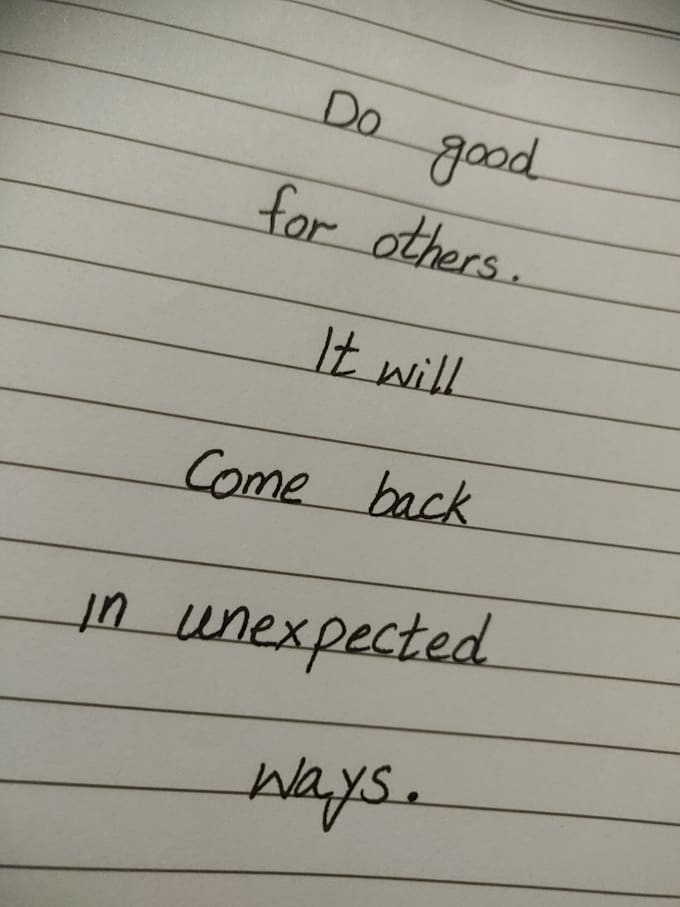 Do good
for others.
It will
Come back
in unexpected
ways.